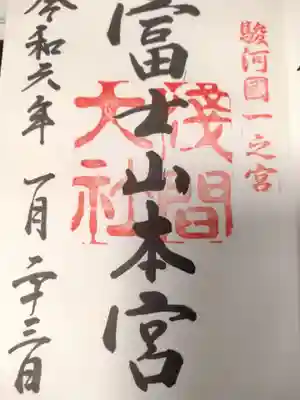 駿河國一之宮
富士山本宮
淺間
大社
令和六年一月二十三日